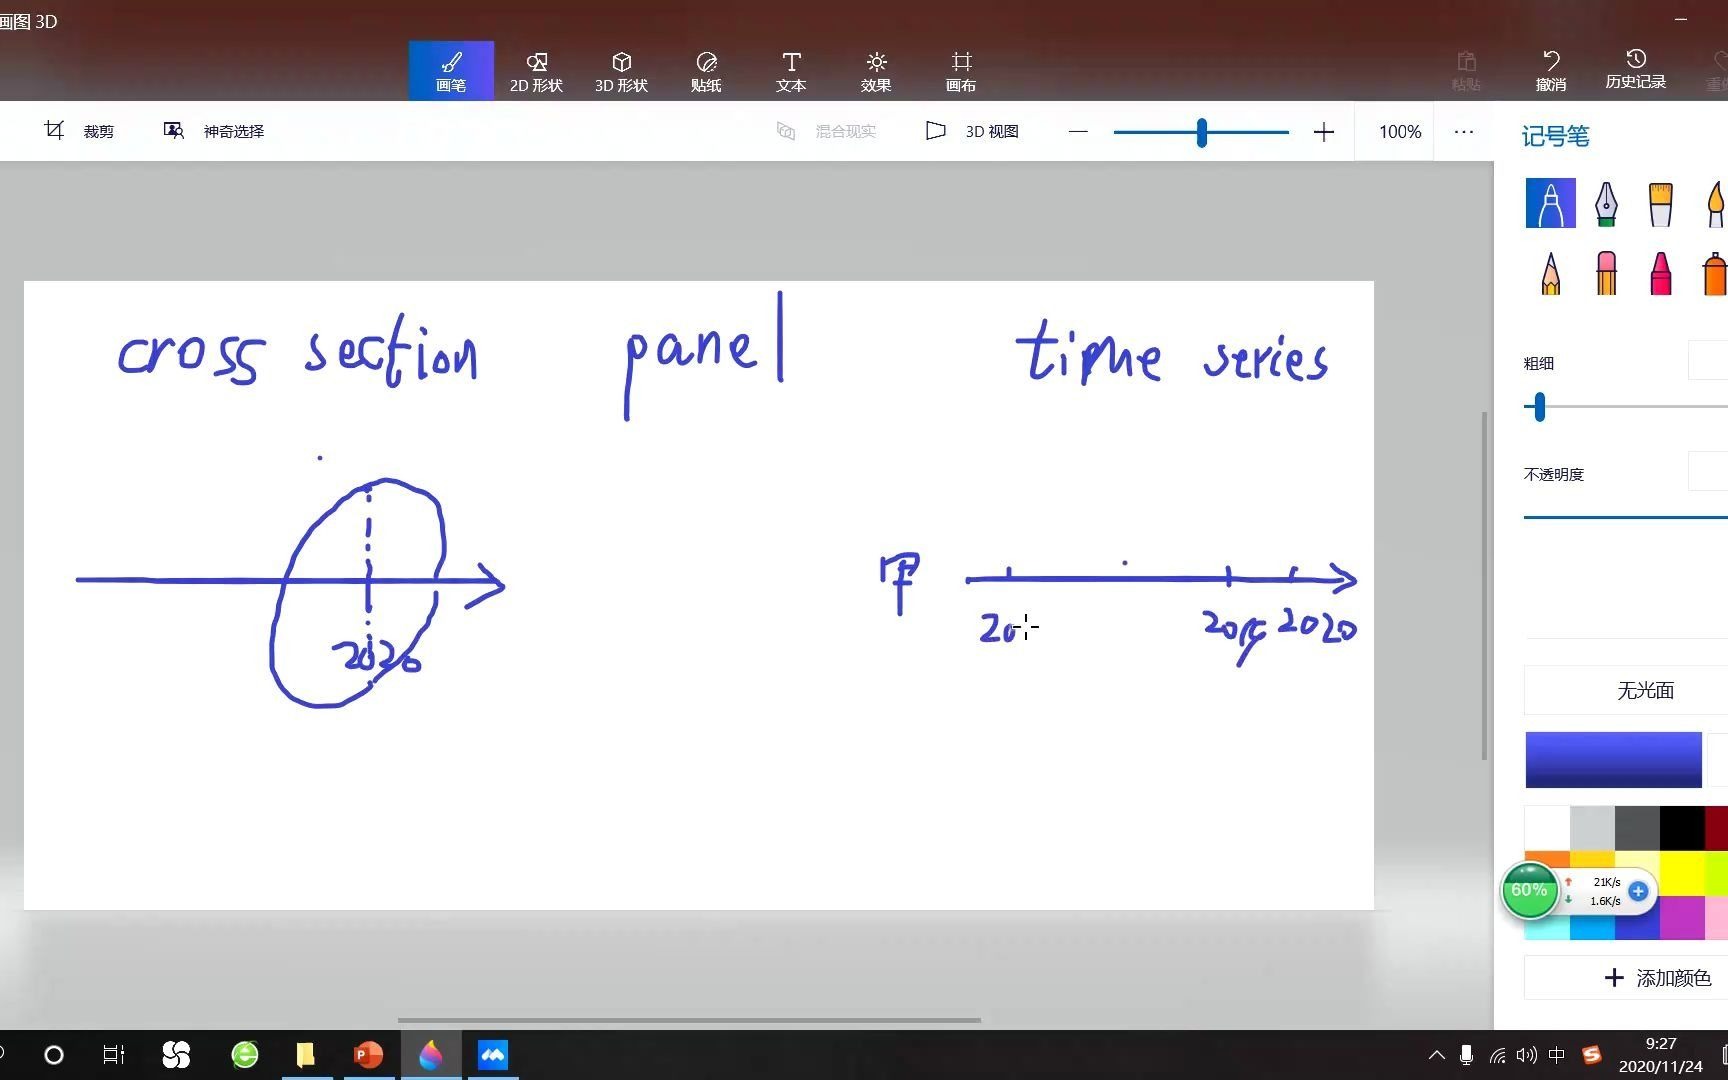 画图 3D
画笔 2D 形状 3D 形状 贴纸 文本 效果 画布 粘贴 撤消 历史记录
裁剪 神奇选择 混合现实 3D 视图 100% ...
记号笔
cross section panel time series
粗细
不透明度
甲
20 2019 2020
2020
无光面
60% 21K/s
1.6K/s
添加颜色
中 9:27
2020/11/24